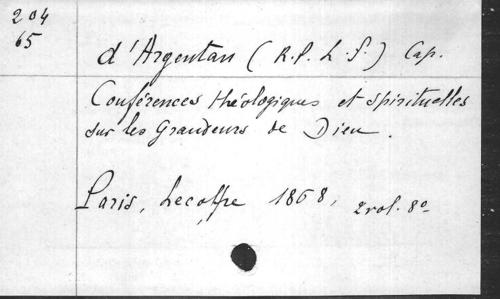 204
65
d'Argentan (R.P. L.F.) Cap.
Conférences théologiques et spirituelles
sur les Grandeurs de Dieu.
Paris, Lecoffre 1868, 2 vol. 8º